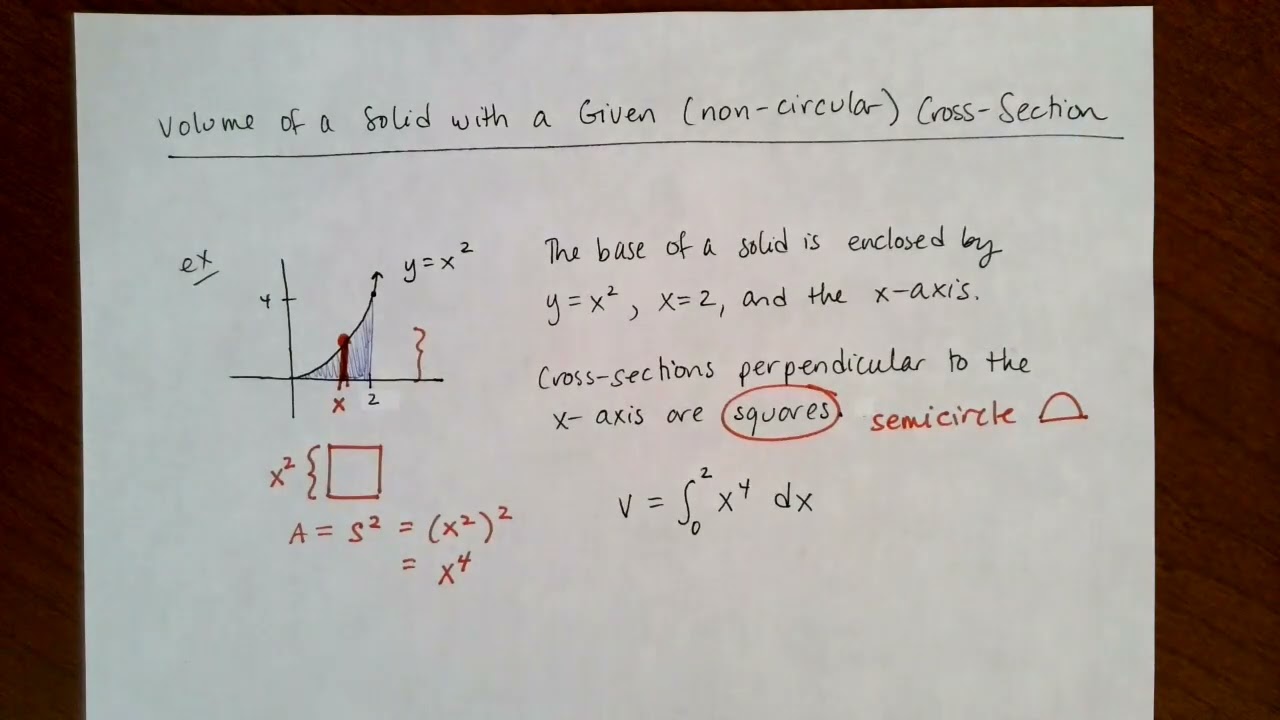 Volume of a Solid with a Given (non-circular) Cross-Section
ex
y = x²
4
x
2
The base of a solid is enclosed by
y = x², x = 2, and the x-axis.
Cross-sections perpendicular to the
x-axis are squares. semicircle
x² {
A = s² = (x²)²
= x⁴
V = ∫₀² x⁴ dx